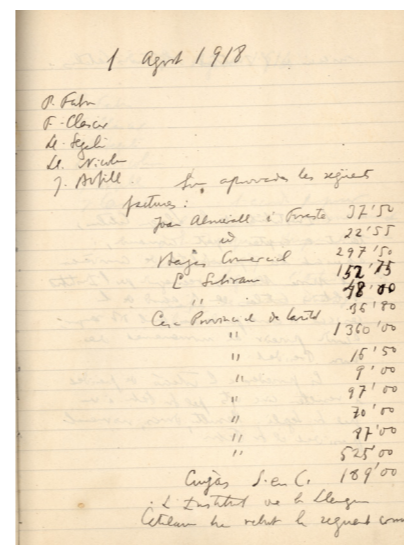 1 Agost 1918
P. Fabra
F. Clascar
Ll. Segalà
Ll. Nicolau
J. Bofill. Son aprovades les seguents
factures:
Joan Almirall i Foraste 37'50
id 22'55
Viajes Comercial 297'50
152'75
" 48'00
Casa Provincial de Caritat 1360'00
" 16'50
" 9'00
" 97'00
" 70'00
" 47'00
" 525'00
S. en C. 189'00
L'Institut de la Llengua
Catalana ha rebut la seguent com